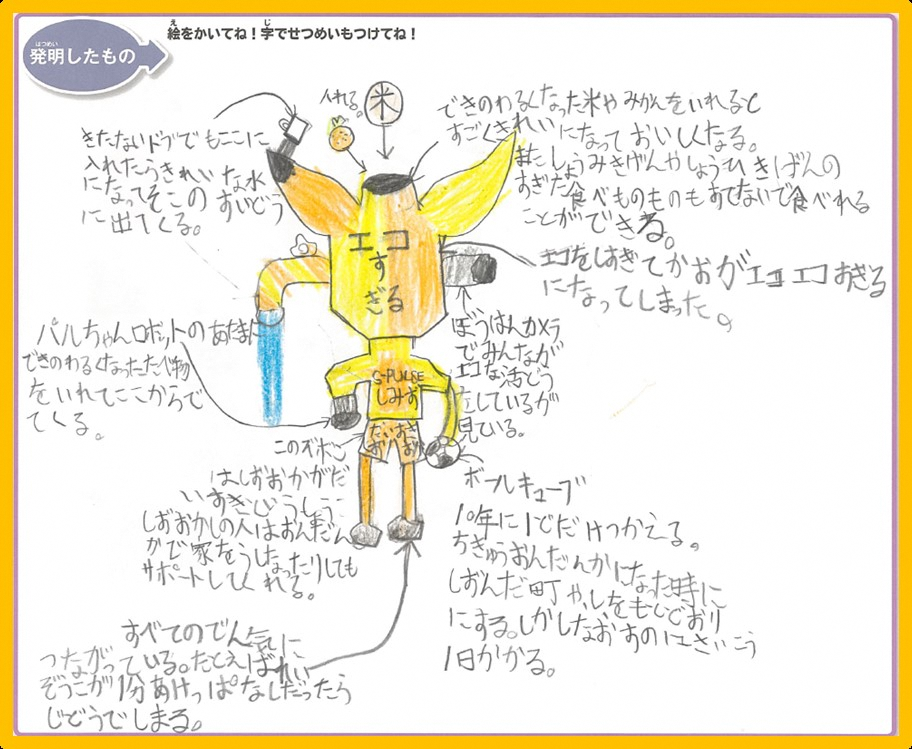 はつめい
発明したもの
絵をかいてね!字でせつめいもつけてね!
え
じ
入れる。
米
できのわるくなった米やみかんをいれると
すごくきれいになっておいしくなる。
またしょうみきげんやしょうひきげんの
すぎた食べものものもすてないで食べれる
ことができる。
きたないドブでもここに
入れたらきれいな水
になってそこのすいどう
に出てくる。
エコ
す
ぎる
エコをしすぎてかおがエコエコすぎる
になってしまった。
パルちゃんロボットのあたまに
できのわるくなったたべ物
をいれてここからで
てくる。
ぼうはんカメラ
でみんなが
エコな活どう
をしているが
見ている。
S-PULSE
しみず
だいすき
このズボン
はしずおかがだ
いすきじょうしょう
しずおかしの人はおんだん
かで家をうしなったりしても
サポートしてくれる。
ボールキューブ
10年に1どだけつかえる。
ちきゅうおんだんかになった時に
しずんだ町や、しをもとどおり
にする。しかしなおすのにさいこう
1日かかる。
すべてのでん気に
つながっている。たとえばれい
ぞうこが1分あけっぱなしだったら
じどうでしまる。